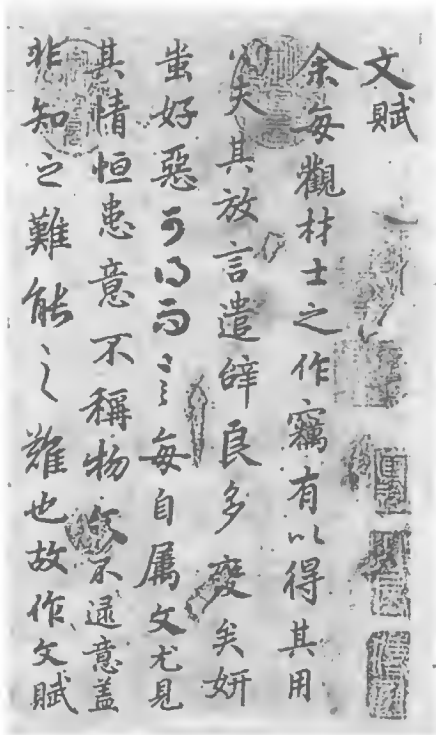 文賦
余每觀材士之作竊有以得其用
心夫其放言遣辞良多變矣妍
蚩好惡可得而言每自属文尤見
其情恒患意不稱物文不逮意盖
非知之難能之難也故作文賦